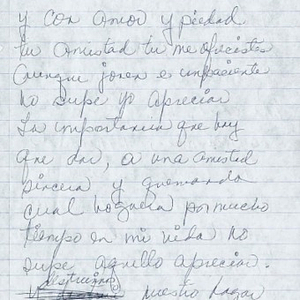 y con amor y piedad
tu amistad tu me ofreciste
Aunque joven e impaciente
no supe yo apreciar
La importancia que hay
que dar, a una amistad
sincera y quemando
cual hoguera por mucho
tiempo en mi vida no
supe aquello apreciar.
destruimos
nuestro hogar